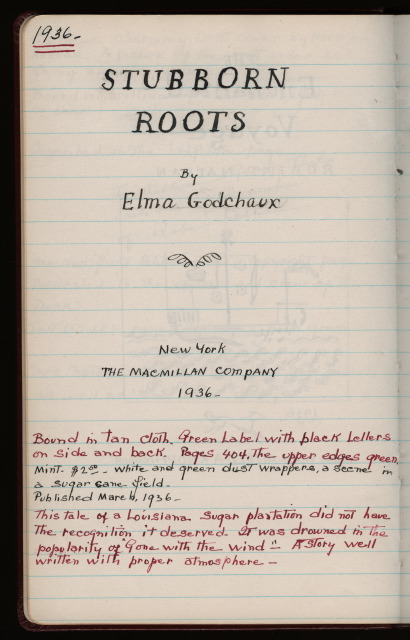 1936-
STUBBORN
ROOTS
By
Elma Godchaux
New York
THE MACMILLAN COMPANY
1936-
Bound in tan cloth. Green Label with black letters
on side and back. Pages 404. The upper edges green.
Mint. $2.50 - white and green dust wrappers, a scene in
a sugar cane field.
Published March, 1936-
This tale of a Louisiana sugar plantation did not have
the recognition it deserved. It was drowned in the
popularity of Gone with the wind" - A story well
written with proper atmosphere -